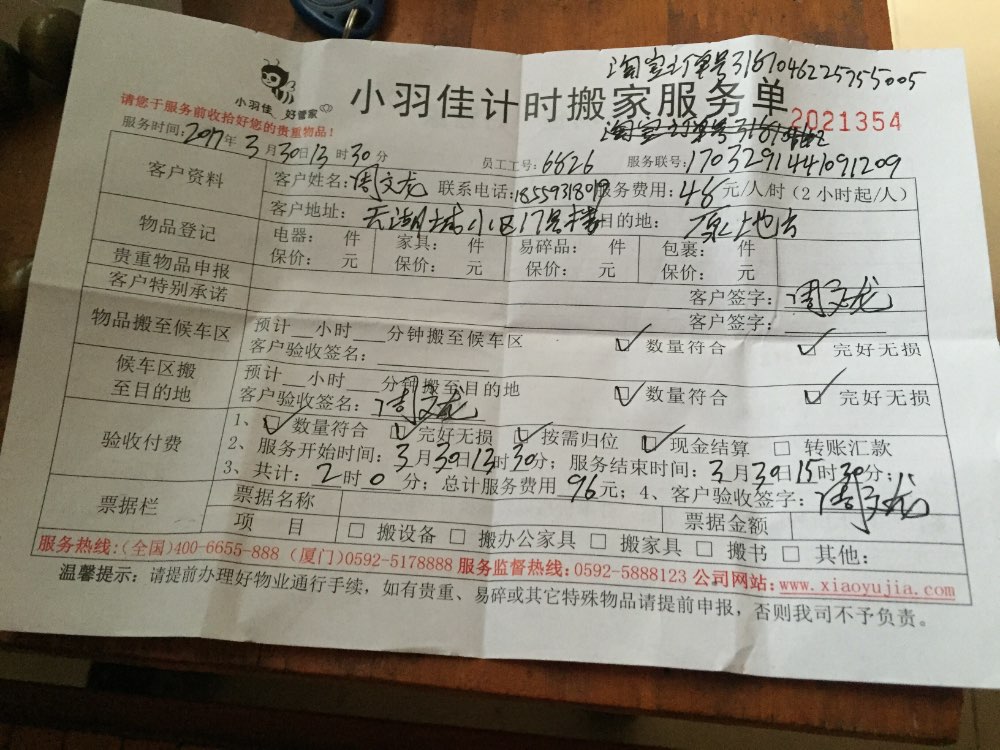 淘宝订单号3167046225755005
小羽佳 好管家
小羽佳计时搬家服务单
2021354
请您于服务前收拾好您的贵重物品!
服务时间:2017年3月30日13时30分 员工工号:6626 服务联号:1703291441091209
客户资料 客户姓名:周文龙 联系电话: 服务费用:48元/人/时(2小时起/人)
客户地址: 天湖城小区17号楼 目的地: 原上地方
物品登记 电器: 件 家具: 件 易碎品: 件 包裹: 件
保价: 元 保价: 元 保价: 元 保价: 元
贵重物品申报 客户签字:周文龙
客户特别承诺 客户签字:
物品搬至候车区 预计__小时__分钟搬至候车区 ☑ 数量符合 ☑ 完好无损
客户验收签名:
候车区搬至目的地 预计__小时__分钟搬至目的地 ☑ 数量符合 ☑ 完好无损
客户验收签名:周文龙
验收付费 1、☑ 数量符合 ☑ 完好无损 ☑ 按需归位 ☑ 现金结算 □ 转账汇款
2、服务开始时间:3月30日13时30分;服务结束时间:3月30日15时30分;
3、共计:2时0分;总计服务费用96元;4、客户验收签字:周文龙
票据栏 票据名称 票据金额
项 目 □ 搬设备 □ 搬办公家具 □ 搬家具 □ 搬书 □ 其他:
服务热线:(全国)400-6655-888 (厦门)0592-5178888 服务监督热线:0592-5888123 公司网站:www.xiaoyujia.com
温馨提示:请提前办理好物业通行手续,如有贵重、易碎或其它特殊物品请提前申报,否则我司不予负责。